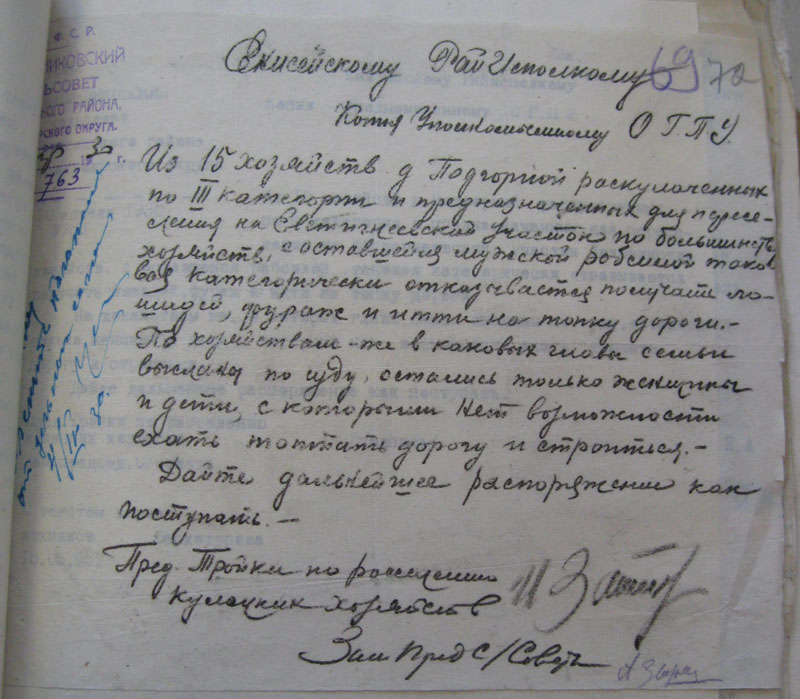 Ф. С. Р.
ИКОВСКИЙ
ЬСОВЕТ
КОГО РАЙОНА,
РСКОГО ОКРУГА.
30 г.
763
69 72
Енисейскому РайИсполкому
Копия Уполномоченному ОГПУ.
Из 15 хозяйств д Подгорной раскулаченных
по III категории и предназначенных для пересе-
ления на участок по большинству
хозяйств, с оставшейся мужской рабсилой тако-
вая категорически отказывается получать ло-
шадей, фураж и итти на топку дороги.-
По хозяйствам-же в каковых главы семьи
высланы по суду, остались только женщины
и дети, с которыми нет возможности
ехать топтать дорогу и строиться.-
Дайте дальнейшее распоряжение как
поступать.-
Пред. Тройки по расселению
кулацких хозяйств
Зам Пред С/Совета